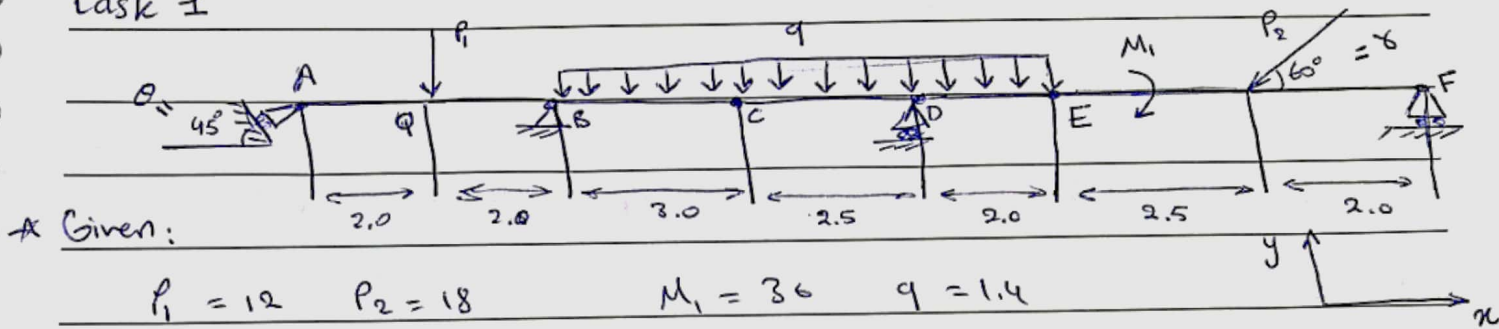 Task 1
P₁ q M₁ P₂ 60° = γ
θ = 45° A Q B C D E F
2,0 2.0 3.0 2.5 2.0 2.5 2.0
* Given:
P₁ = 12 P₂ = 18 M₁ = 36 q = 1.4
y
x